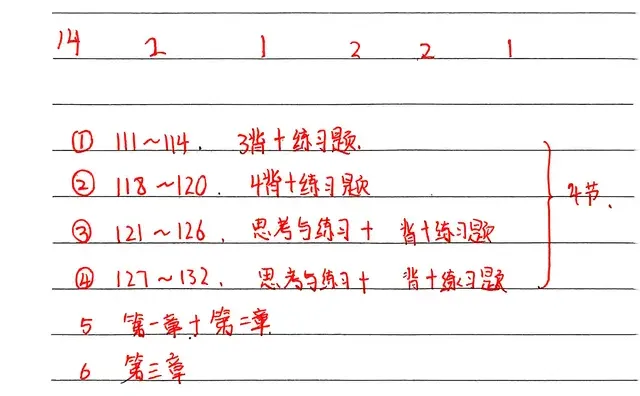 14 2 1 2 2 1
① 111~114. 3背+练习题.
② 118~120. 4背+练习题
③ 121~126. 思考与练习+ 背+练习题
④ 127~132. 思考与练习+ 背+练习题
4节.
5 第一章+第二章
6 第三章